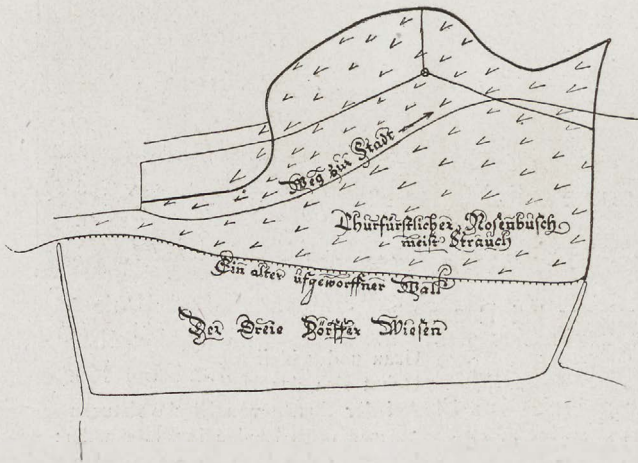 Weg zur Stadt
Churfürstlicher Rosenbusch
meist Strauch
Ein alter ufgeworffner Wall
Der Dreie Dörffer Wiesen